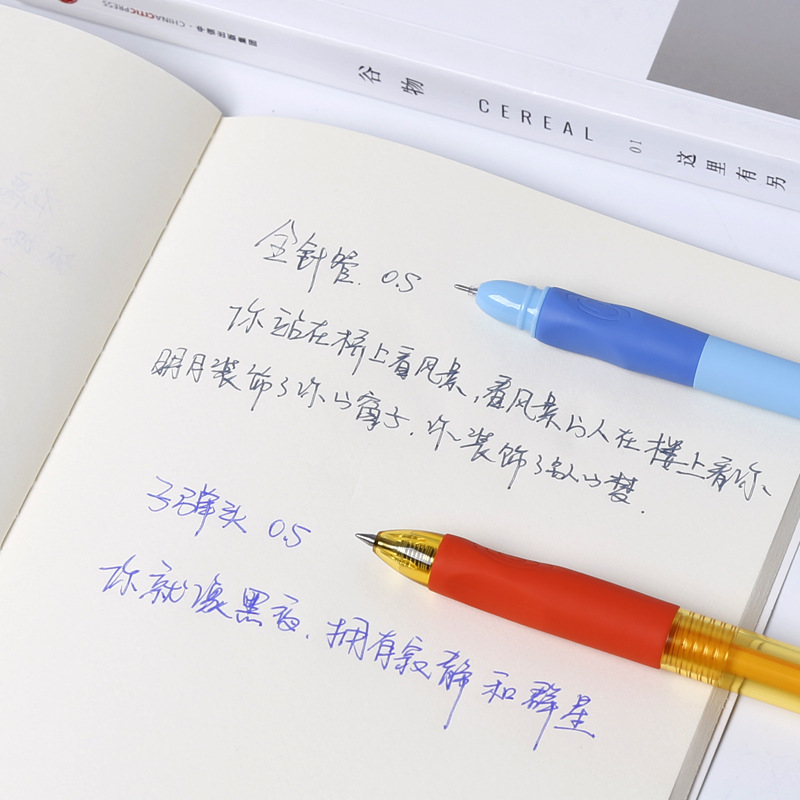 谷物 CEREAL 01 这里有另
全针管. 0.5
你站在桥上看风景,看风景的人在楼上看你、
明月装饰了你的窗子.你装饰了别人的梦.
子弹头 0.5
你就像黑夜.拥有寂静和群星